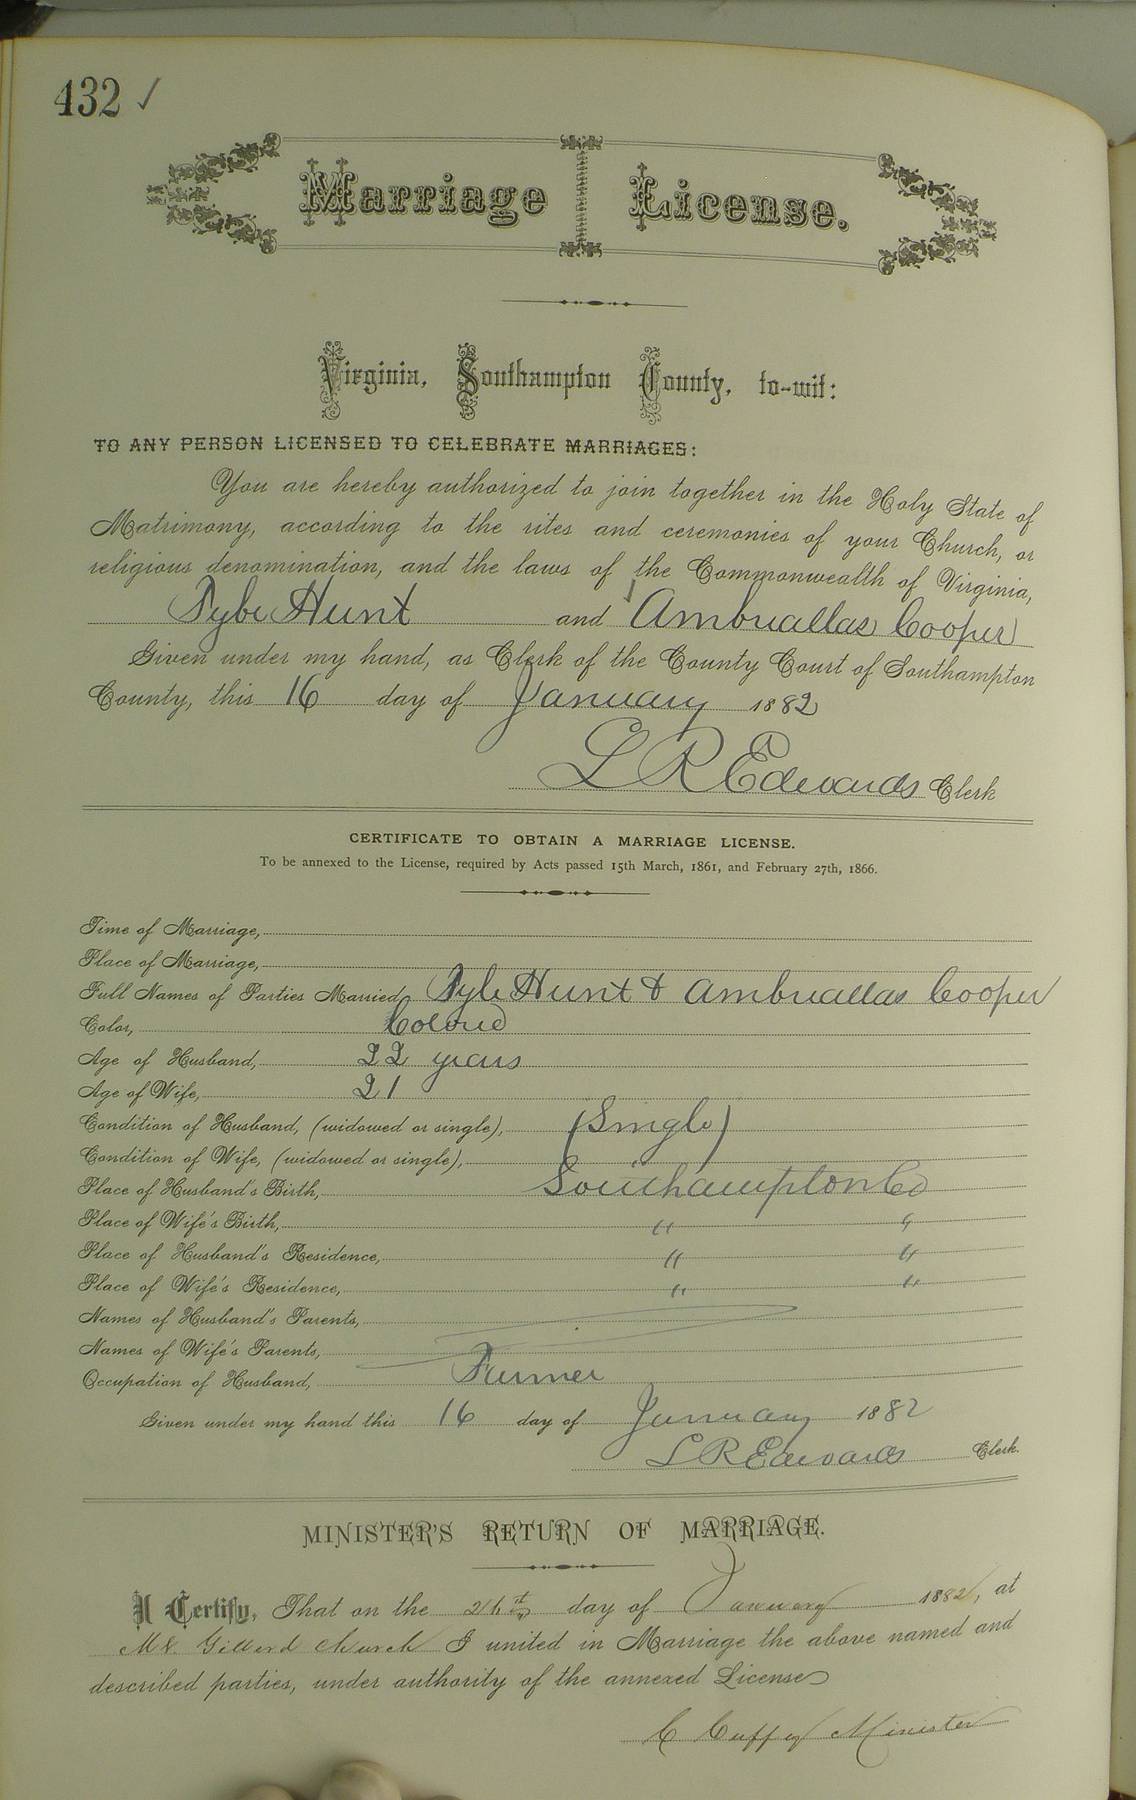 432 ✓
Marriage License.
Virginia, Southampton County, to-wit:
TO ANY PERSON LICENSED TO CELEBRATE MARRIAGES:
You are hereby authorized to join together in the Holy State of
Matrimony, according to the rites and ceremonies of your Church, or
religious denomination, and the laws of the Commonwealth of Virginia,
Hunt and Cooper
Given under my hand, as Clerk of the County Court of Southampton
County, this 16 day of January 1882
L R Edwards Clerk
CERTIFICATE TO OBTAIN A MARRIAGE LICENSE.
To be annexed to the License, required by Acts passed 15th March, 1861, and February 27th, 1866.
Time of Marriage,
Place of Marriage,
Full Names of Parties Married, Hunt & Cooper
Color, Colored
Age of Husband, 22 years
Age of Wife, 21
Condition of Husband, (widowed or single), (Single)
Condition of Wife, (widowed or single),
Place of Husband's Birth, Southampton Co
Place of Wife's Birth, " "
Place of Husband's Residence, " "
Place of Wife's Residence, " "
Names of Husband's Parents,
Names of Wife's Parents,
Occupation of Husband, Farmer
Given under my hand this 16 day of January 1882
L R Edwards Clerk.
MINISTER'S RETURN OF MARRIAGE.
I Certify, That on the day of January 1882, at
Church I united in Marriage the above named and
described parties, under authority of the annexed License
C Cuffey Minister